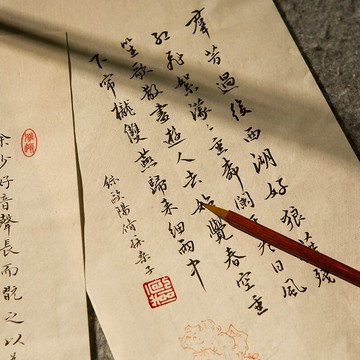 群芳過後西湖好狼藉殘
紅飛絮濛〻垂柳闌日風
笙歌散盡遊人去始覺春空垂
下帘櫳雙燕歸來細雨中
錄歐陽脩采桑子
余少好音聲長而翫之以